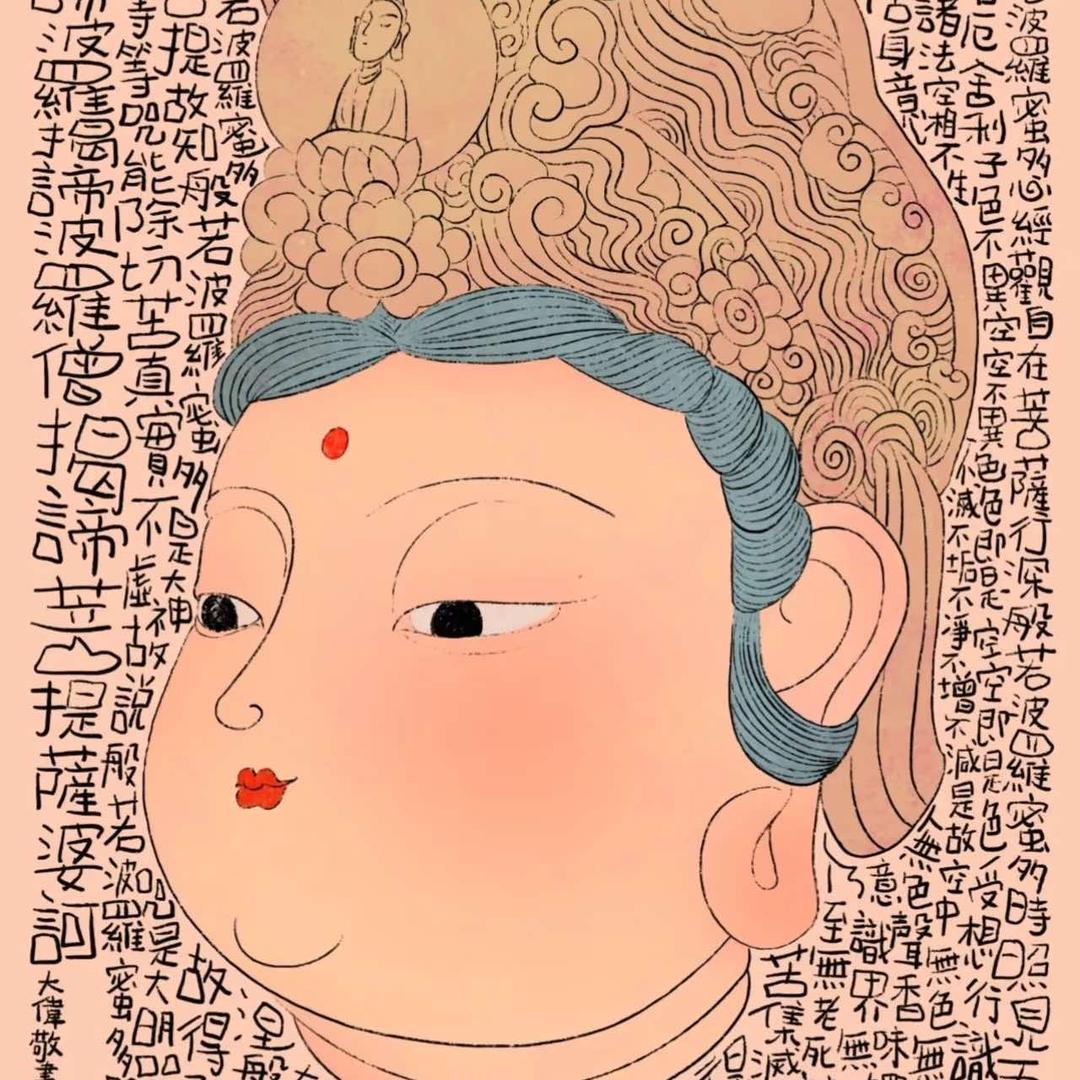 波羅蜜多心經觀自在菩薩行深般若波羅蜜多時照見
厄舍利子色不異空空不異色色即是空空即是色受想行識
諸法空相不生
不滅不垢不淨不增不減是故空中無色無
身意
無色聲香味
意識界無
至無老死
苦集滅
若波羅蜜多
涅般
提故知般若波羅蜜多是大神
故得
咒是大明咒
等等咒能除一切苦真實不虛故說般若波羅蜜多
波羅揭諦波羅僧揭諦菩提薩婆訶
大偉敬書